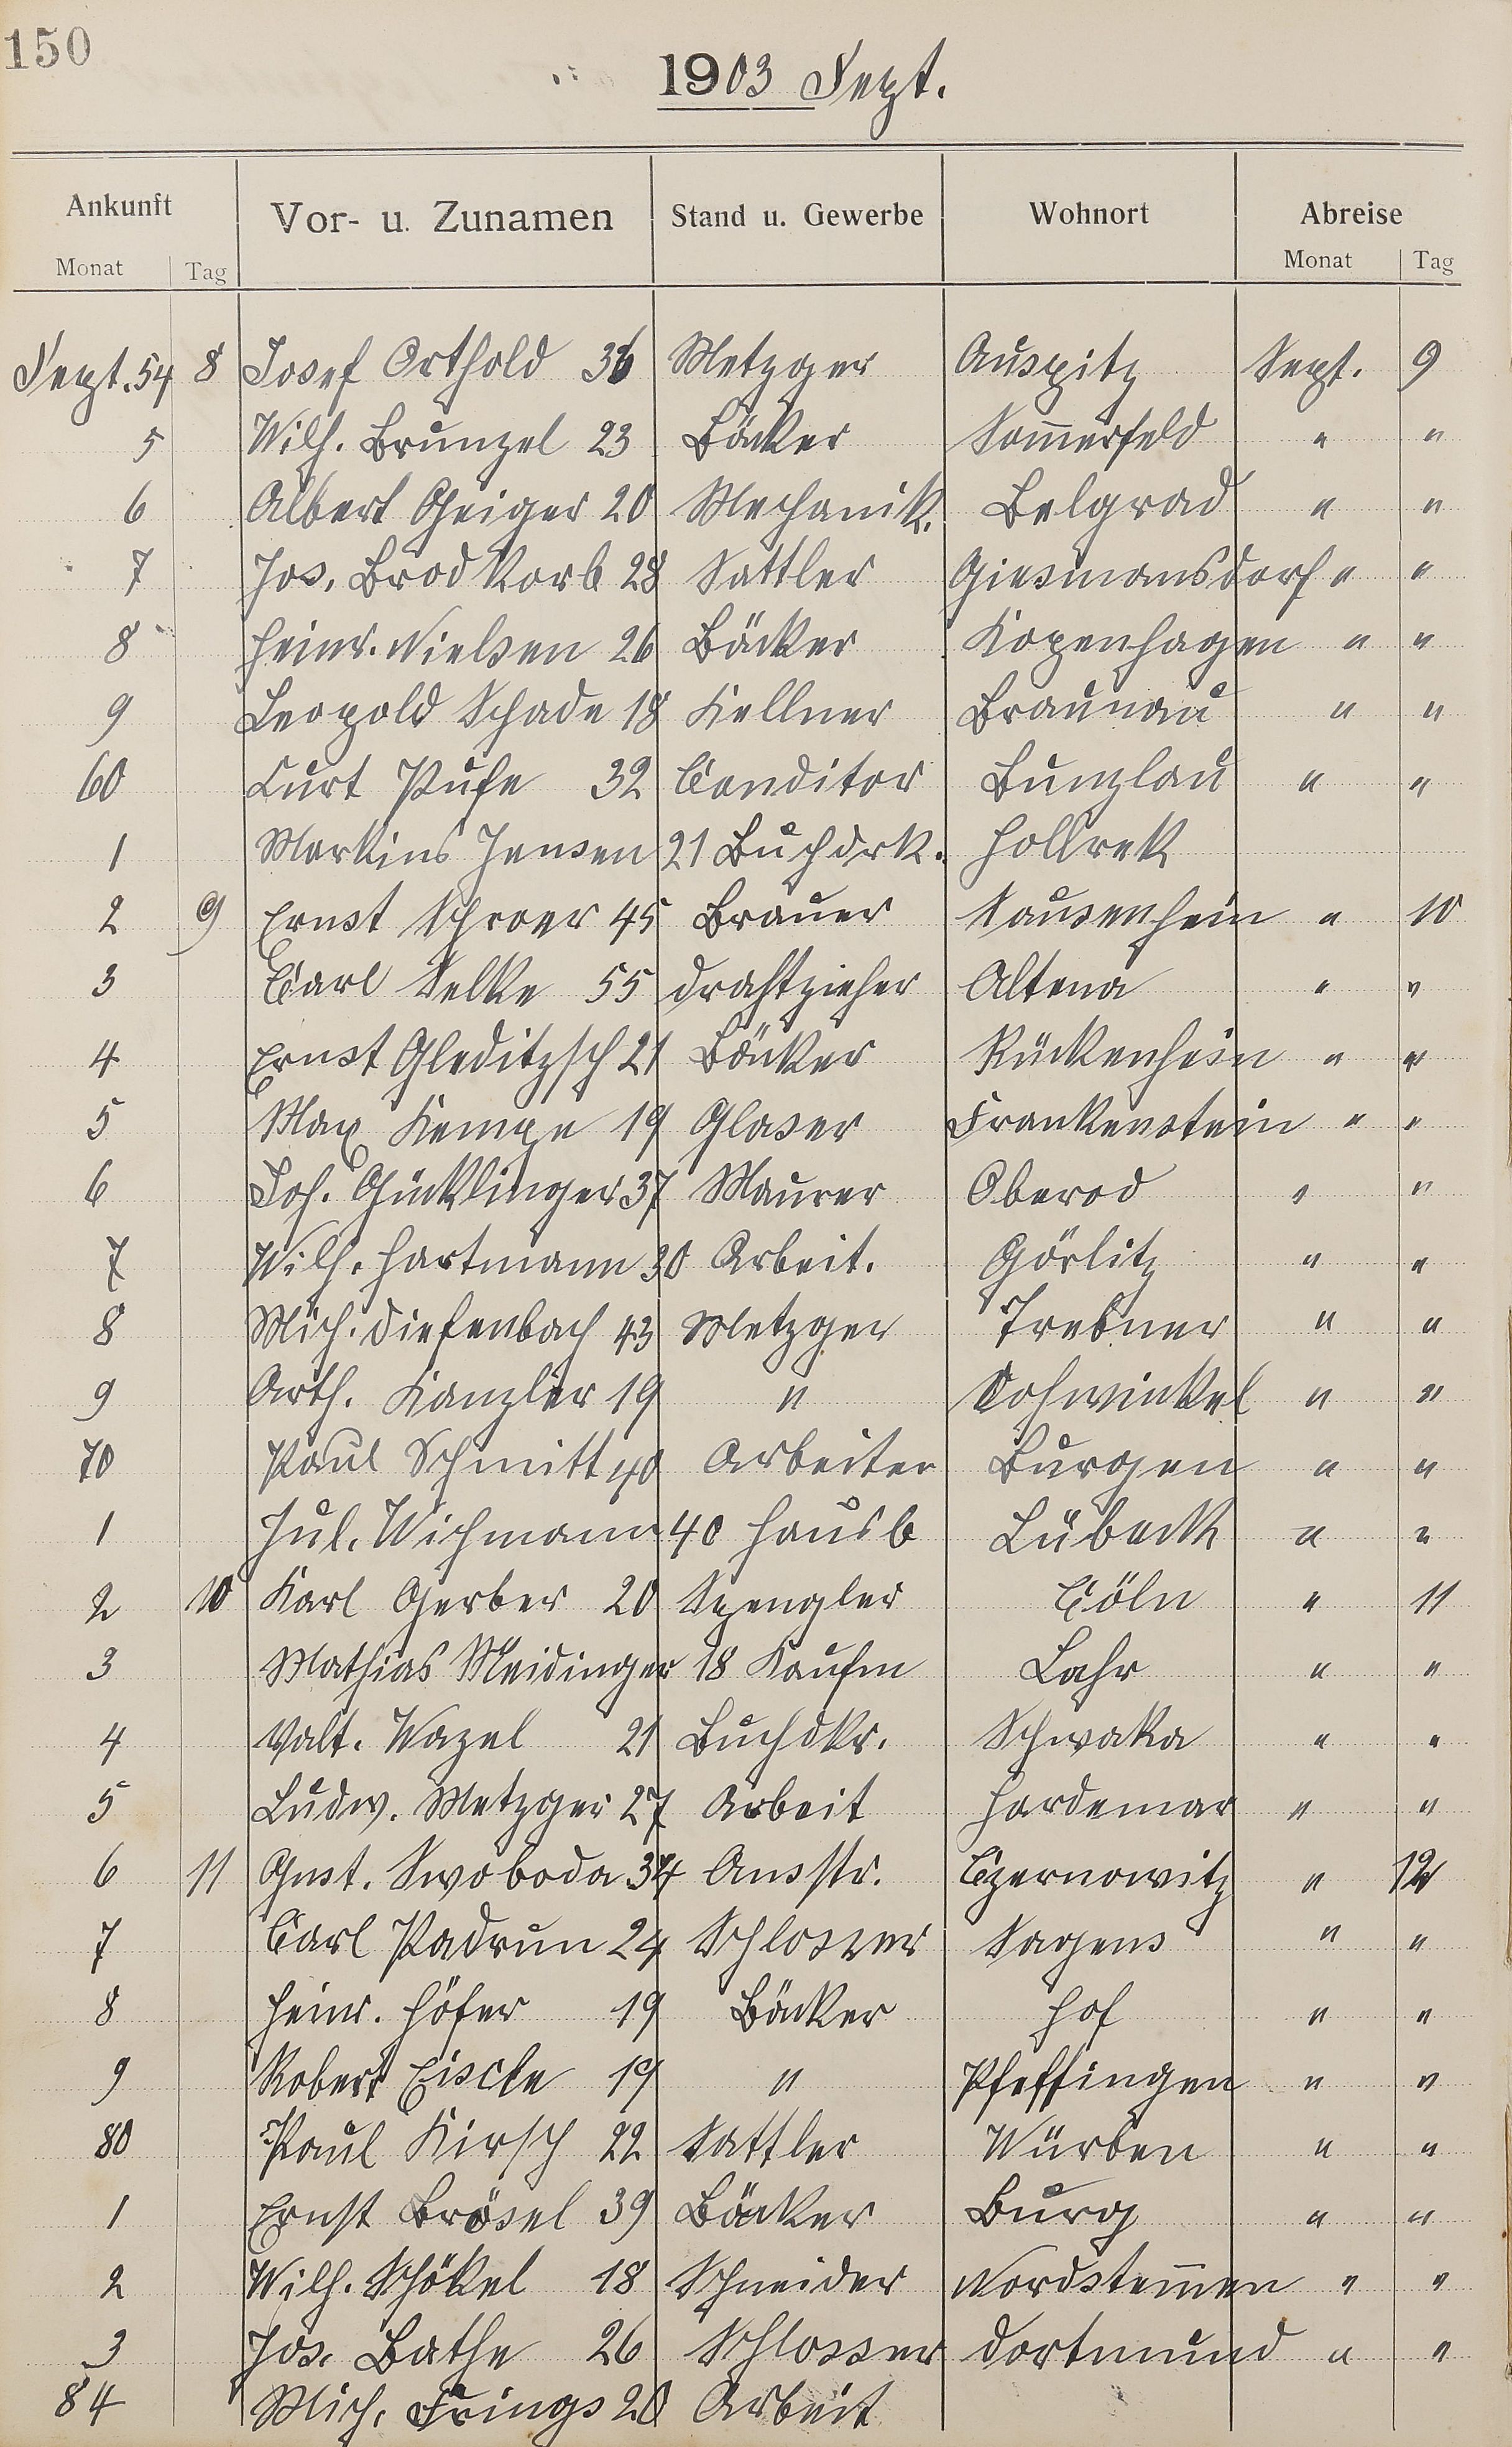 150
1903 Sept.
Ankunft Vor- u. Zunamen Stand u. Gewerbe Wohnort Abreise
Monat Tag Monat Tag
Sept. 54 8 Josef Orthold 36 Metzger Auspitz Sept. 9
5 Wilh. Brunzel 23 Bäcker Som̅erfeld " "
6 Albert Geiger 20 Mechanik. Belgrad " "
7 Jos. Brodkorb 28 Sattler Giesmansdorf " "
8 Heinr. Nielsen 26 Bäcker Kopenhagen " "
9 Leopold Schade 18 Kellner Braunau " "
60 Curt Pufe 32 Conditor Bunzlau " "
1 Markins Jensen 21 Buchdrk. Hollrek
2 9 Ernst Schroer 45 Brauer Sausenheim " 10
3 Carl Selke 55 Drahtzieher Altena " "
4 Ernst Gleditzsch 21 Bäcker Rückenhein " "
5 Max Kempe 19 Glaser Frankenstein " "
6 Joh. Gücklinger 37 Maurer Oberod " "
7 Wilh. Hartmann 30 Arbeit. Görlitz " "
8 Mich. Diefenbach 43 Metzger Trebner " "
9 Arth. Kanzler 19 " Vohwinkel " "
70 Paul Schmitt 40 Arbeiter Burgen " "
1 Jul. Wichmann 40 Hausb Lübeck " "
2 10 Karl Gerber 20 Spengler Cöln " 11
3 Mathias Meidinger 18 Kaufm Lahr " "
4 Valt. Wazel 21 Buchdkr. Schwaka " "
5 Ludw. Metzger 27 Arbeit Hardemar " "
6 11 Gust. Swoboda 34 Ansstr. Czernowitz " 12
7 Carl Padrun 24 Schlosser Sagens " "
8 Heinr. Höfer 19 Bäcker Hof " "
9 Robert Eiscle 19 " Pfeffingen " "
80 Paul Kirsch 22 Sattler Würben " "
1 Ernst Brösel 39 Bäcker Burg " "
2 Wilh. Schökel 18 Schneider Nordstem̅en " "
3 Jos. Bathe 26 Schlosser Dortmund " "
84 Mich. Frings 20 Arbeit